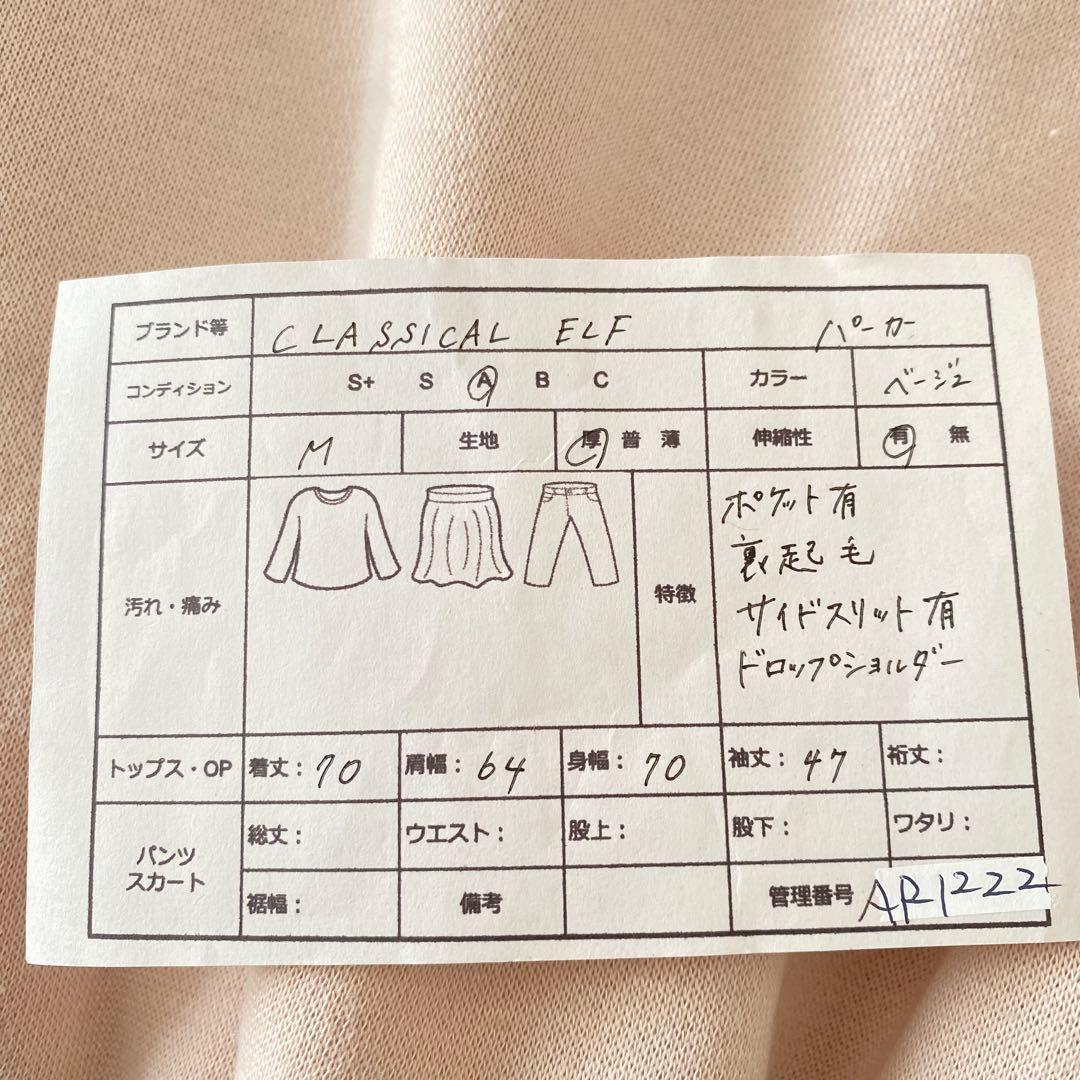 ブランド等 CLASSICAL ELF パーカー
コンディション S+ S A B C カラー ベージュ
サイズ M 生地 厚 普 薄 伸縮性 有 無
汚れ・痛み 特徴
ポケット有
裏起毛
サイドスリット有
ドロップショルダー
トップス・OP 着丈：70 肩幅：64 身幅：70 袖丈：47 裄丈：
パンツ
スカート
総丈： ウエスト： 股上： 股下： ワタリ：
裾幅： 備考 管理番号 AR1222